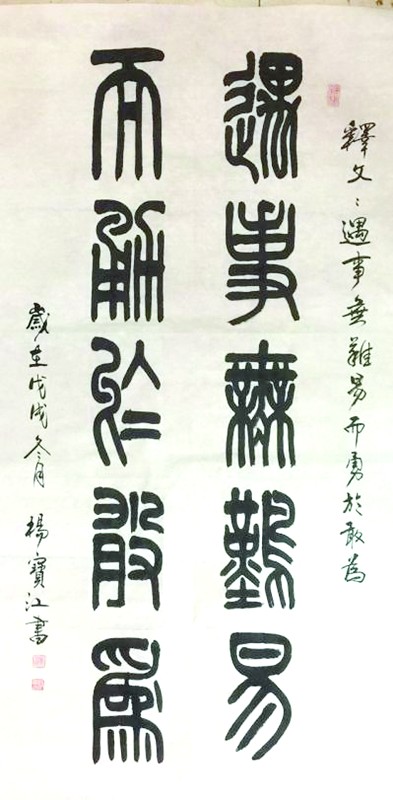 釋文：遇事無難易而勇於敢為
遇事無難易
而勇於敢為
歲在戊戌冬月 楊寶江書